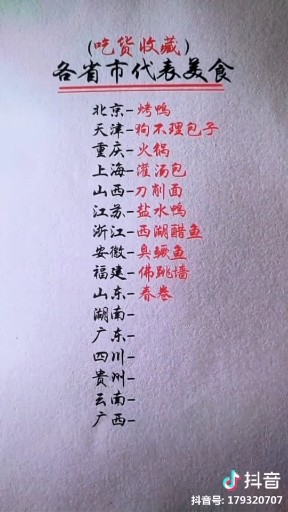 (吃货收藏)
各省市代表美食
北京-烤鸭
天津-狗不理包子
重庆-火锅
上海-灌汤包
山西-刀削面
江苏-盐水鸭
浙江-西湖醋鱼
安徽-臭鳜鱼
福建-佛跳墙
山东-春卷
湖南-
广东-
四川-
贵州-
云南-
广西-
抖音
抖音号: 179320707